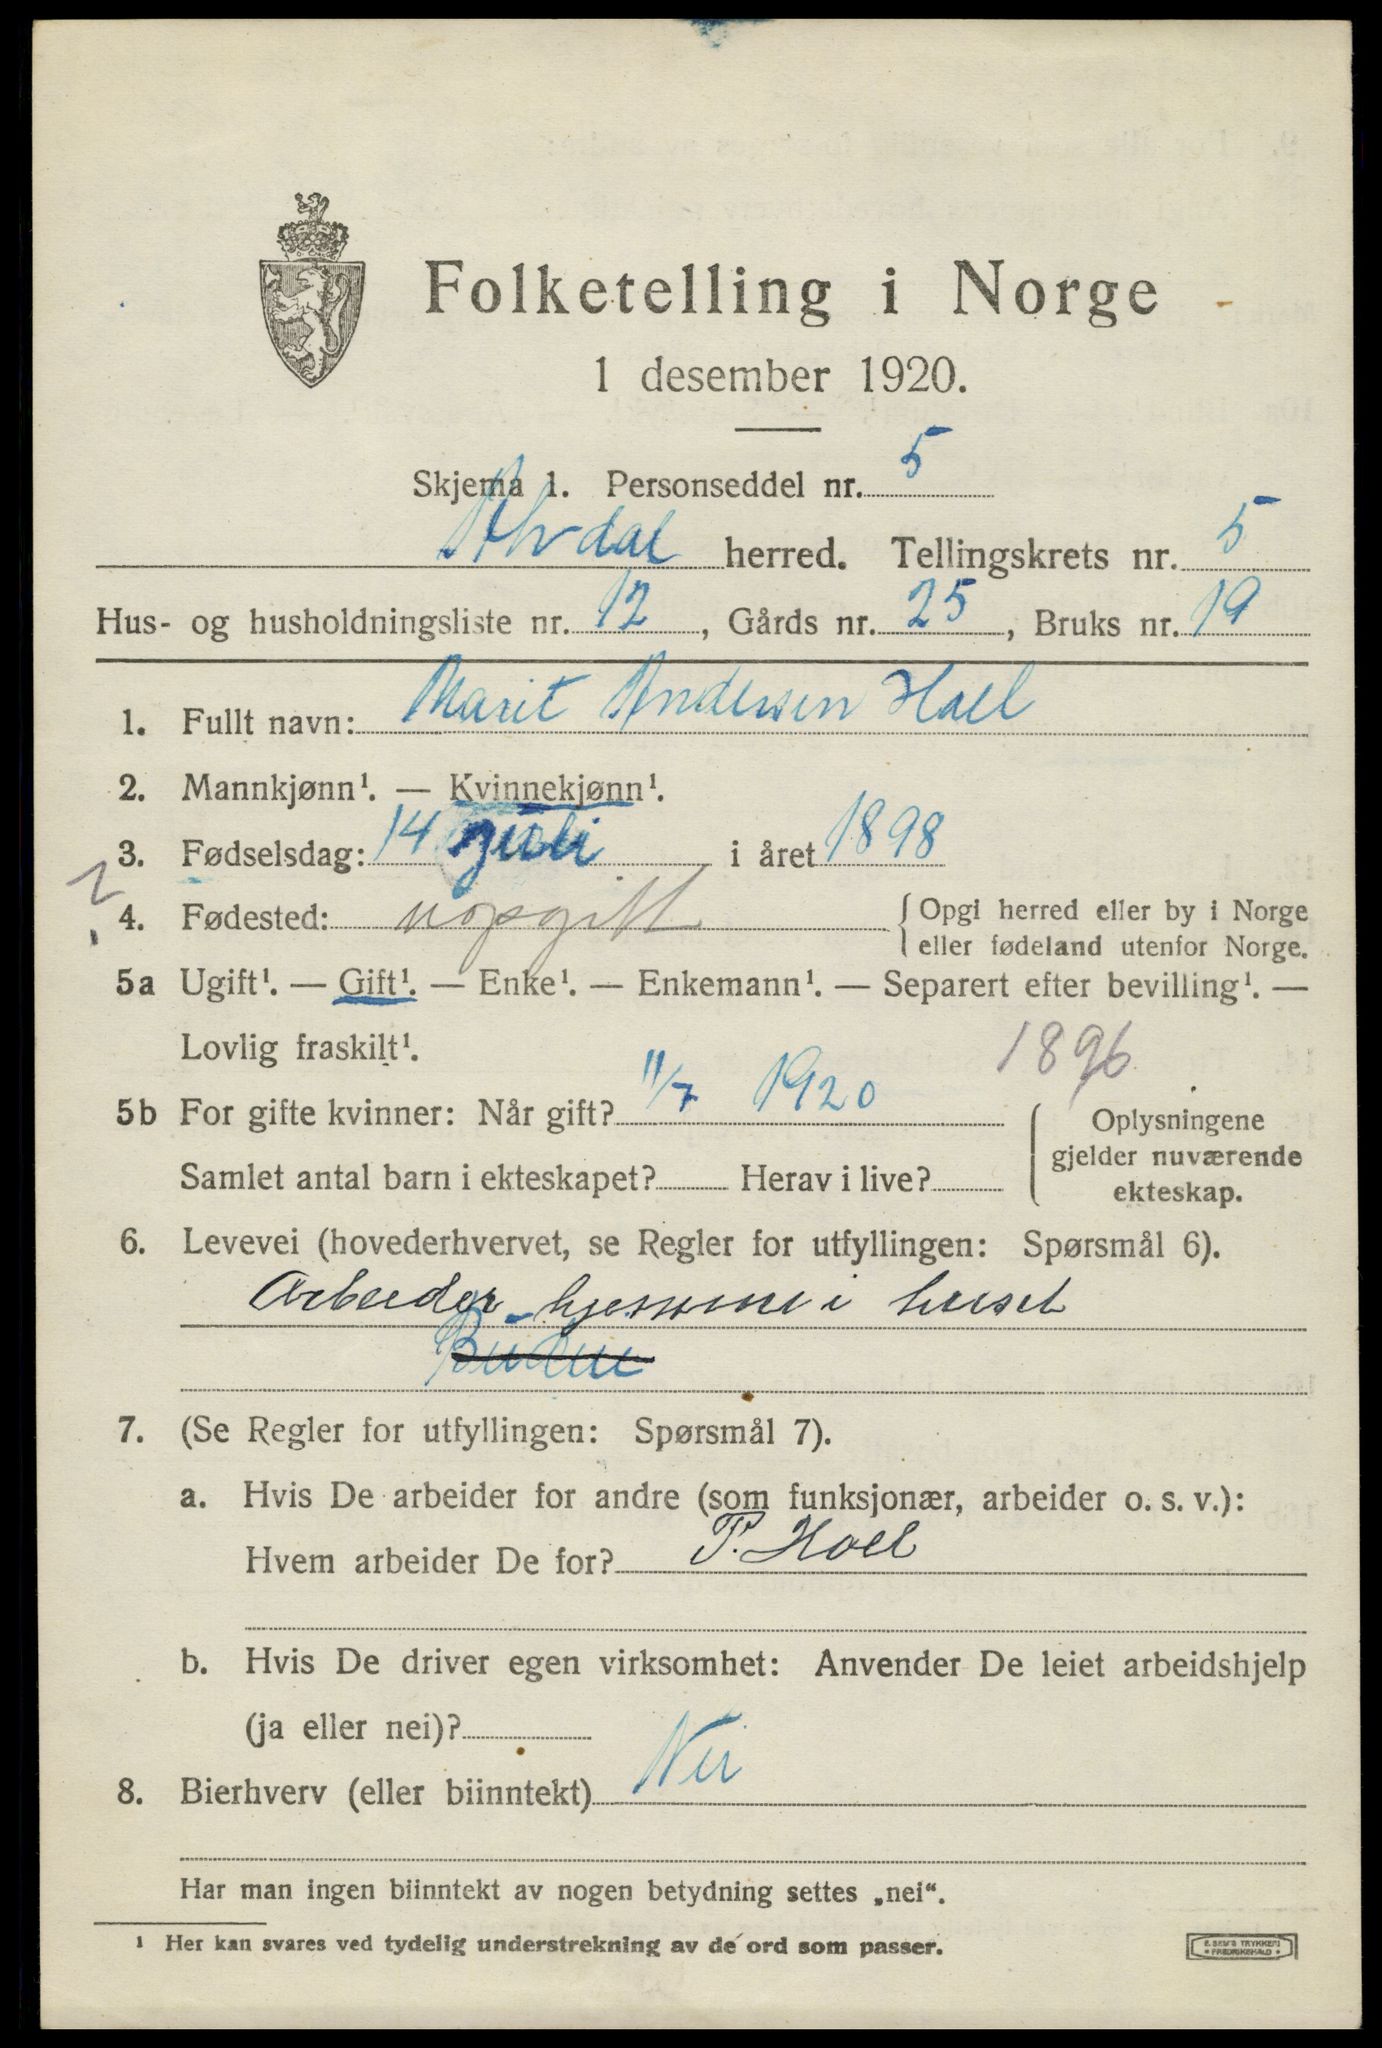 Folketelling i Norge
1 desember 1920.
Skjema 1. Personseddel nr. 5
Alvdal herred. Tellingskrets nr. 5
Hus- og husholdningsliste nr. 12, Gårds nr. 25, Bruks nr. 19
1. Fullt navn: Marit Andersen Hoel
2. Mannkjønn¹. — Kvinnekjønn¹.
3. Fødselsdag: 14 juli i året 1898
4. Fødested: uopgitt { Opgi herred eller by i Norge
eller fødeland utenfor Norge.
5a Ugift¹. — Gift¹. — Enke¹. — Enkemann¹. — Separert efter bevilling¹. —
Lovlig fraskilt¹.
1896
5b For gifte kvinner: Når gift? 11/7 1920
Samlet antal barn i ekteskapet? Herav i live?
Oplysningene
gjelder nuværende
ekteskap.
6. Levevei (hovederhvervet, se Regler for utfyllingen: Spørsmål 6).
Arbeider hjemme i huset
Budeie
7. (Se Regler for utfyllingen: Spørsmål 7).
a. Hvis De arbeider for andre (som funksjonær, arbeider o. s. v.):
Hvem arbeider De for? P. Hoel
b. Hvis De driver egen virksomhet: Anvender De leiet arbeidshjelp
(ja eller nei)?
8. Bierhverv (eller biinntekt) Nei
Har man ingen biinntekt av nogen betydning settes „nei“.
¹ Her kan svares ved tydelig understrekning av de ord som passer.
E. SEM'S TRYKKERI
• FREDRIKSHALD •